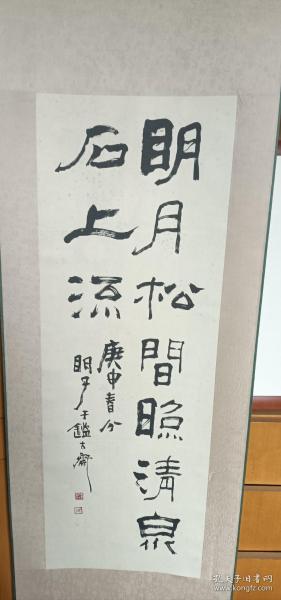 明月松間照清泉
石上流
庚申春分
明子於鑑古齋
孔夫子旧书网
kongfz.com